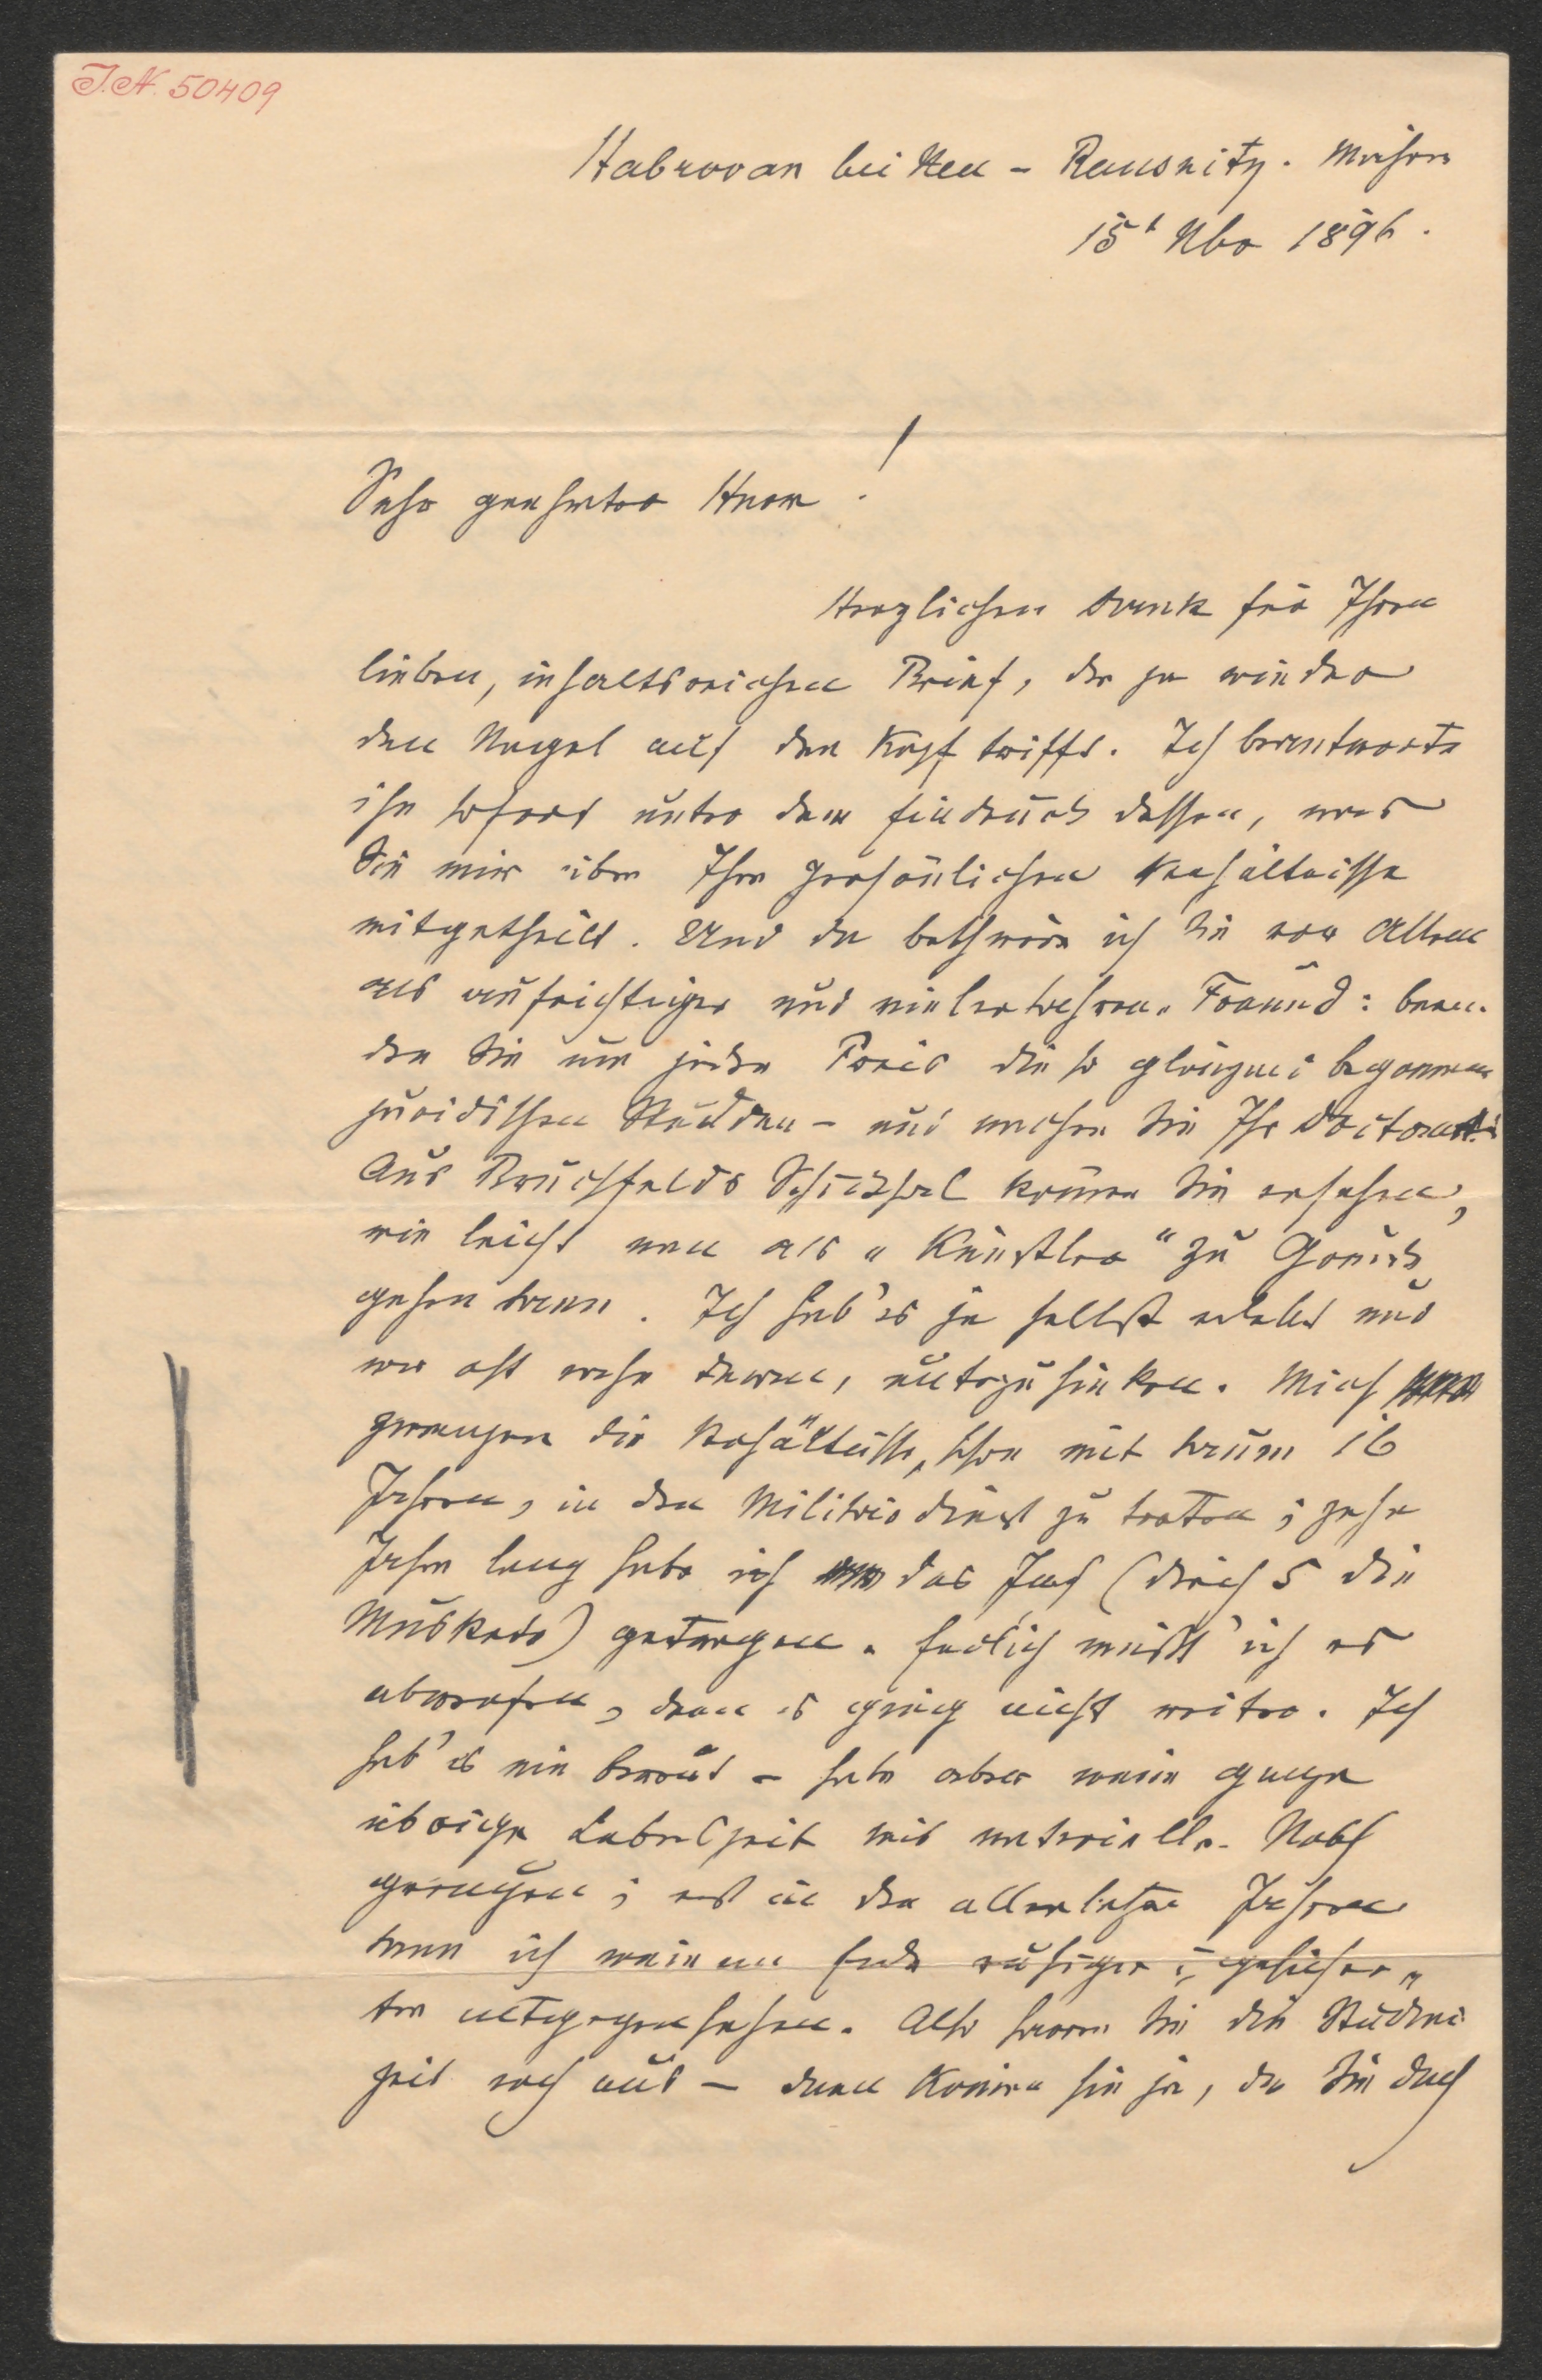 I.N. 50409
Habrovan bei Neu-Rausnitz. Mähren
15t Nbr 1896.
Sehr geehrter Herr!
Herzlichen Dank für Ihren
lieben, inhaltsreichen Brief, der ja wieder
den Nagel auf den Kopf trifft. Ich beantworte
ihn sofort unter dem Eindruck dessen, was
Sie mir über Ihre persönlichen Verhältnisse
mitgetheilt. Und da beschwöre ich Sie vor Allem
als aufrichtiger und vielerfahrener Freund: been-
den Sie um jeden Preis die so glänzend begonnenen
juridischen Studien - und machen Sie Ihr Doctorat.
Aus Bruchfelds Schicksal können Sie ersehen,
wie leicht man als „Künstler" zu Grunde
gehen kann. Ich hab's ja selbst erlebt und
war oft nahe daran, unterzusinken. Mich
zwangen die Verhältnisse, schon mit kaum 16
Jahren, in den Militärdienst zu treten; zehn
Jahre lang habe ich das Joch (durch 5 die
Muskete) getragen. Endlich mußt' ich es
abwerfen, denn es ging nicht weiter. Ich
hab' es nie bereut - habe aber meine ganze
übrige Lebenszeit mit materieller Noth
gerungen; erst in den allerletzten Jahren
kann ich meinem Ende ruhiger u. gesicher-
ter entgegensehen. Also harren Sie die Studien
zeit noch aus - dann können Sie ja, da Sie doch